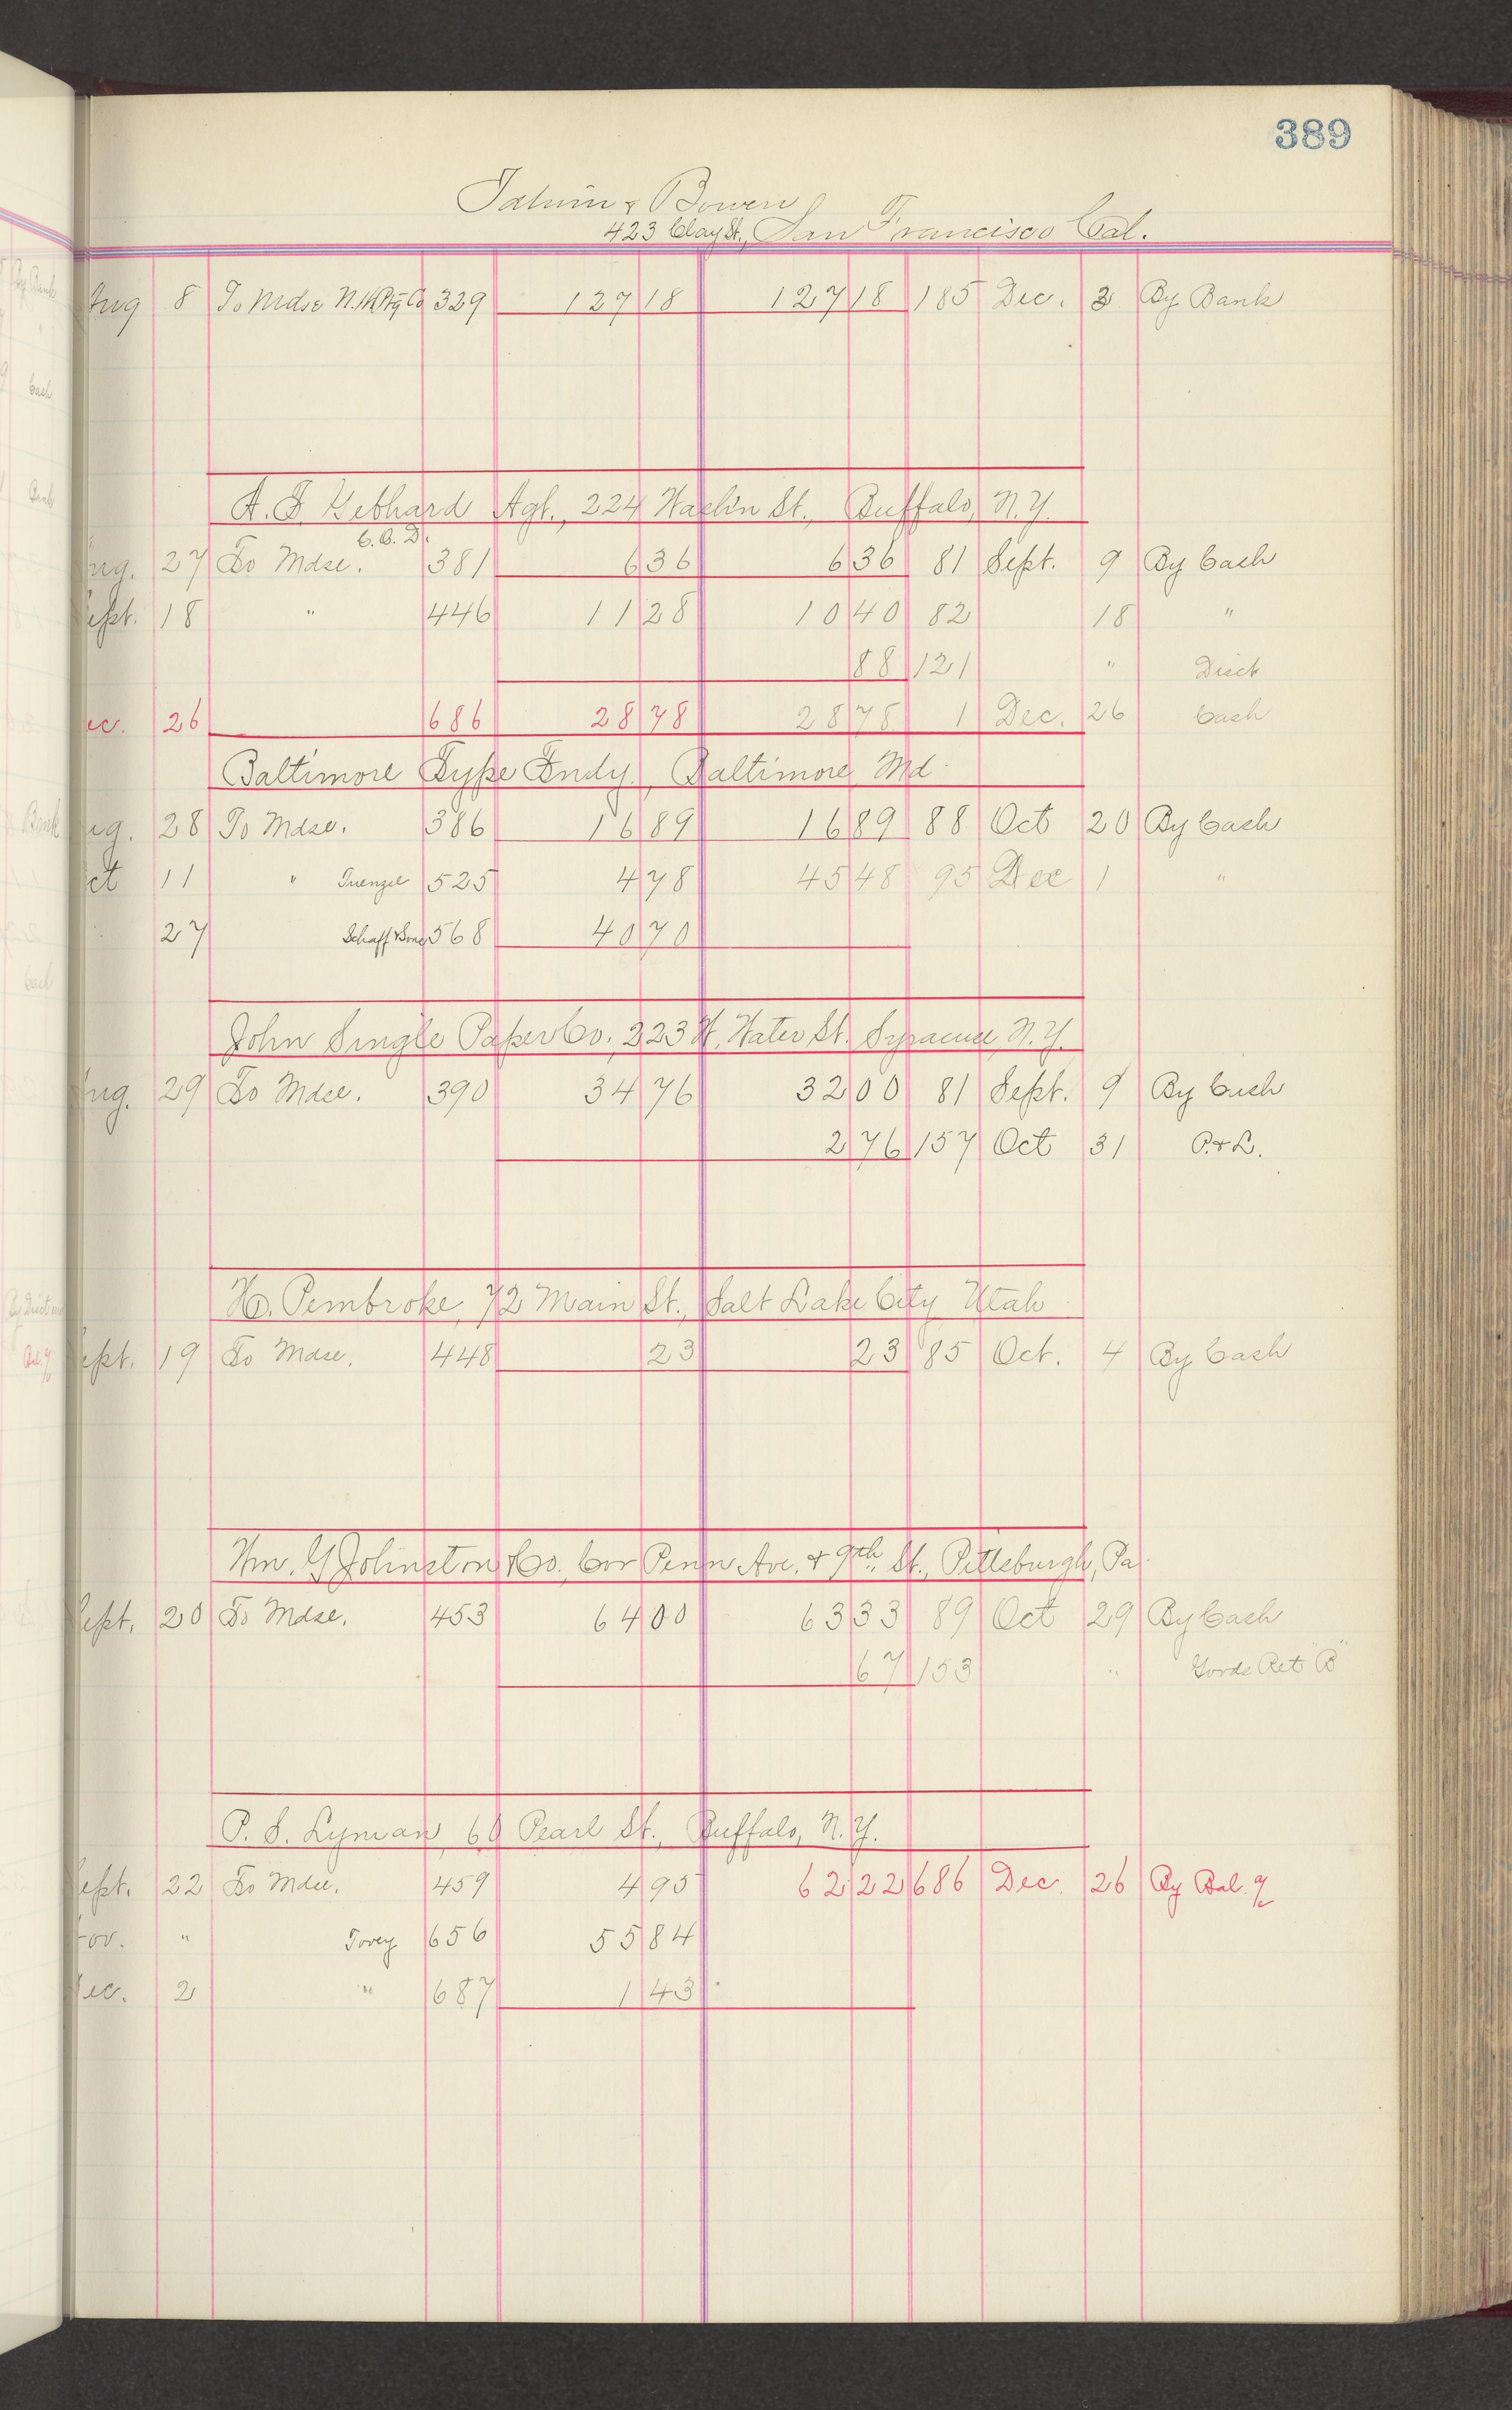 389
Tatum & Bowen
423 Clay St., San Francisco Cal.
Aug 8 To Mdse 329 127 18 127 18 185 Dec. 3 By Bank
A. F. Gebhard Agt., 224 St., Buffalo, N.Y.
C.O.D.
Aug. 27 To Mdse. 381 6 36 6 36 81 Sept. 9 By Cash
Sept. 18 " 446 11 28 10 40 82 18 "
88 121 " Disct
Dec. 26 686 28 78 28 78 1 Dec. 26 Cash
Baltimore Type Fndy., Baltimore, Md.
Aug. 28 To Mdse. 386 16 89 16 89 88 Oct 20 By Cash
Oct 11 " 525 4 78 45 48 95 Dec 1 "
27 Schaff & Sons 568 40 70
John Single Paper Co., 223 W. Water St. Syracuse, N.Y.
Aug. 29 To Mdse. 390 34 76 32 00 81 Sept. 9 By Cash
2 76 157 Oct 31 P. & L.
H. Pembroke, 72 Main St., Salt Lake City Utah
Sept. 19 To Mdse. 448 23 23 85 Oct. 4 By Cash
Wm. G Johnston & Co. Cor Penn Ave. & 9th St., Pittsburgh, Pa.
Sept. 20 To Mdse. 453 64 00 63 33 89 Oct 29 By Cash
67 153 " Gords Ret "B"
P. S. Lyman, 60 Pearl St., Buffalo, N.Y.
Sept. 22 To Mdse. 459 4 95 62 22 686 Dec. 26 By Bal. %
Nov. " Tovey 656 55 84
Dec. 2 " 687 1 43